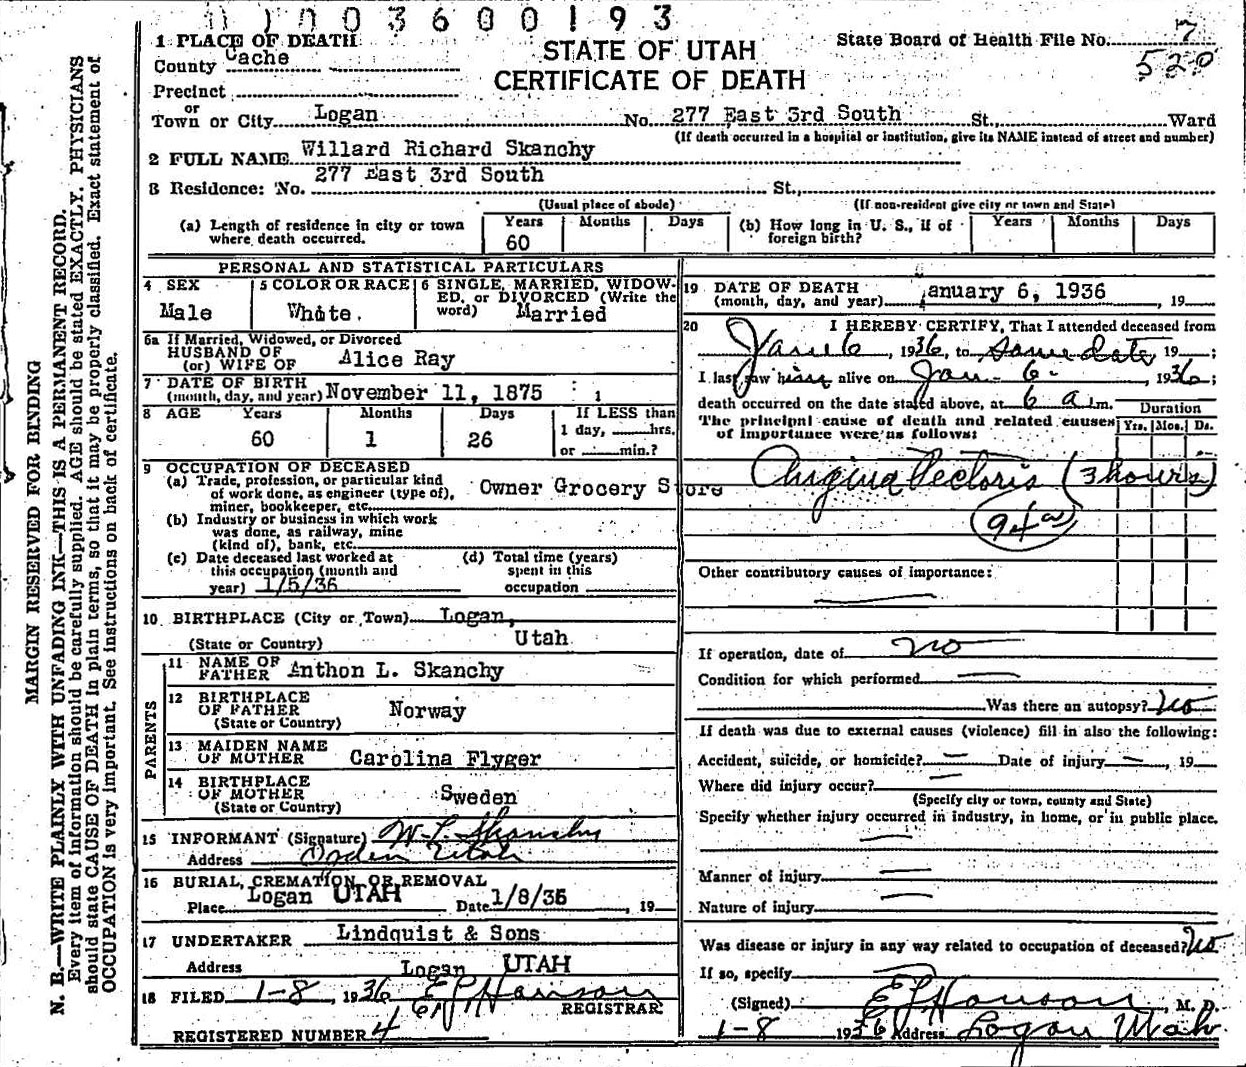 003600193
1 PLACE OF DEATH
STATE OF UTAH
State Board of Health File No. 7
County Cache
CERTIFICATE OF DEATH
520
Precinct
or
Town or City Logan No. 277 East 3rd South St., Ward
(If death occurred in a hospital or institution, give its NAME instead of street and number)
2 FULL NAME Willard Richard Skanchy
3 Residence: No. 277 East 3rd South St.,
(Usual place of abode) (If non-resident give city or town and State)
(a) Length of residence in city or town where death occurred. Years 60 Months Days (b) How long in U. S., if of foreign birth? Years Months Days
PERSONAL AND STATISTICAL PARTICULARS
4 SEX
Male
5 COLOR OR RACE
White.
6 SINGLE, MARRIED, WIDOW-
ED, or DIVORCED (Write the
word) Married
6a If Married, Widowed, or Divorced
HUSBAND OF
(or) WIFE OF Alice Ray
7 DATE OF BIRTH
(month, day, and year) November 11, 1875
8 AGE Years Months Days If LESS than
60 1 26 1 day, hrs.
or min.?
9 OCCUPATION OF DECEASED
(a) Trade, profession, or particular kind
of work done, as engineer (type of), Owner Grocery Store
miner, bookkeeper, etc.
(b) Industry or business in which work
was done, as railway, mine
(kind of), bank, etc.
(c) Date deceased last worked at
this occupation (month and
year) 1/5/36
(d) Total time (years)
spent in this
occupation
10 BIRTHPLACE (City or Town) Logan,
(State or Country) Utah
PARENTS
11 NAME OF
FATHER Anthon L. Skanchy
12 BIRTHPLACE
OF FATHER Norway
(State or Country)
13 MAIDEN NAME
OF MOTHER Carolina Flyger
14 BIRTHPLACE
OF MOTHER Sweden
(State or Country)
15 INFORMANT (Signature) W. L. Skanchy
Address Ogden Utah
16 BURIAL, CREMATION, OR REMOVAL
Place Logan UTAH Date 1/8/36, 19
17 UNDERTAKER Lindquist & Sons
Address Logan UTAH
18 FILED 1-8, 1936 E L Hanson
REGISTRAR
REGISTERED NUMBER 4
19 DATE OF DEATH
(month, day, and year) January 6, 1936, 19
20 I HEREBY CERTIFY, That I attended deceased from
Jan 6, 1936, to same date 19 ;
I last saw him alive on Jan - 6 -, 1936;
death occurred on the date stated above, at 6 a.m.
Duration
The principal cause of death and related causes
of importance were as follows:
Yrs. Mos. Ds.
Angina Pectoris (3 hours)
94a
Other contributory causes of importance:
If operation, date of no
Condition for which performed
Was there an autopsy? No
If death was due to external causes (violence) fill in also the following:
Accident, suicide, or homicide? Date of injury , 19
Where did injury occur?
(Specify city or town, county and State)
Specify whether injury occurred in industry, in home, or in public place.
Manner of injury
Nature of injury
Was disease or injury in any way related to occupation of deceased? No
If so, specify
(Signed) E L Hanson, M. D.
1-8 1936 Address Logan Utah
MARGIN RESERVED FOR BINDING
N. B.—WRITE PLAINLY WITH UNFADING INK—THIS IS A PERMANENT RECORD.
Every item of information should be carefully supplied. AGE should be stated EXACTLY. PHYSICIANS
should state CAUSE OF DEATH in plain terms, so that it may be properly classified. Exact statement of
OCCUPATION is very important. See instructions on back of certificate.